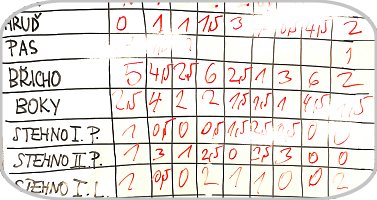 HRUĎ 0 1 1 1,5 3 4,5 2
PAS 1
BŘICHO 5 4,5 2,5 6 2,5 1 3 6 2
BOKY 2,5 4 2 2 1,5 1,5 1 4,5
STEHNO I. P. 1 0,5 0 0,5 1,5 2,5 0
STEHNO II. P. 1 3 1 2,5 0 3 0 0
STEHNO I. L. 1 0,5 0 2 1 1 0 0 2